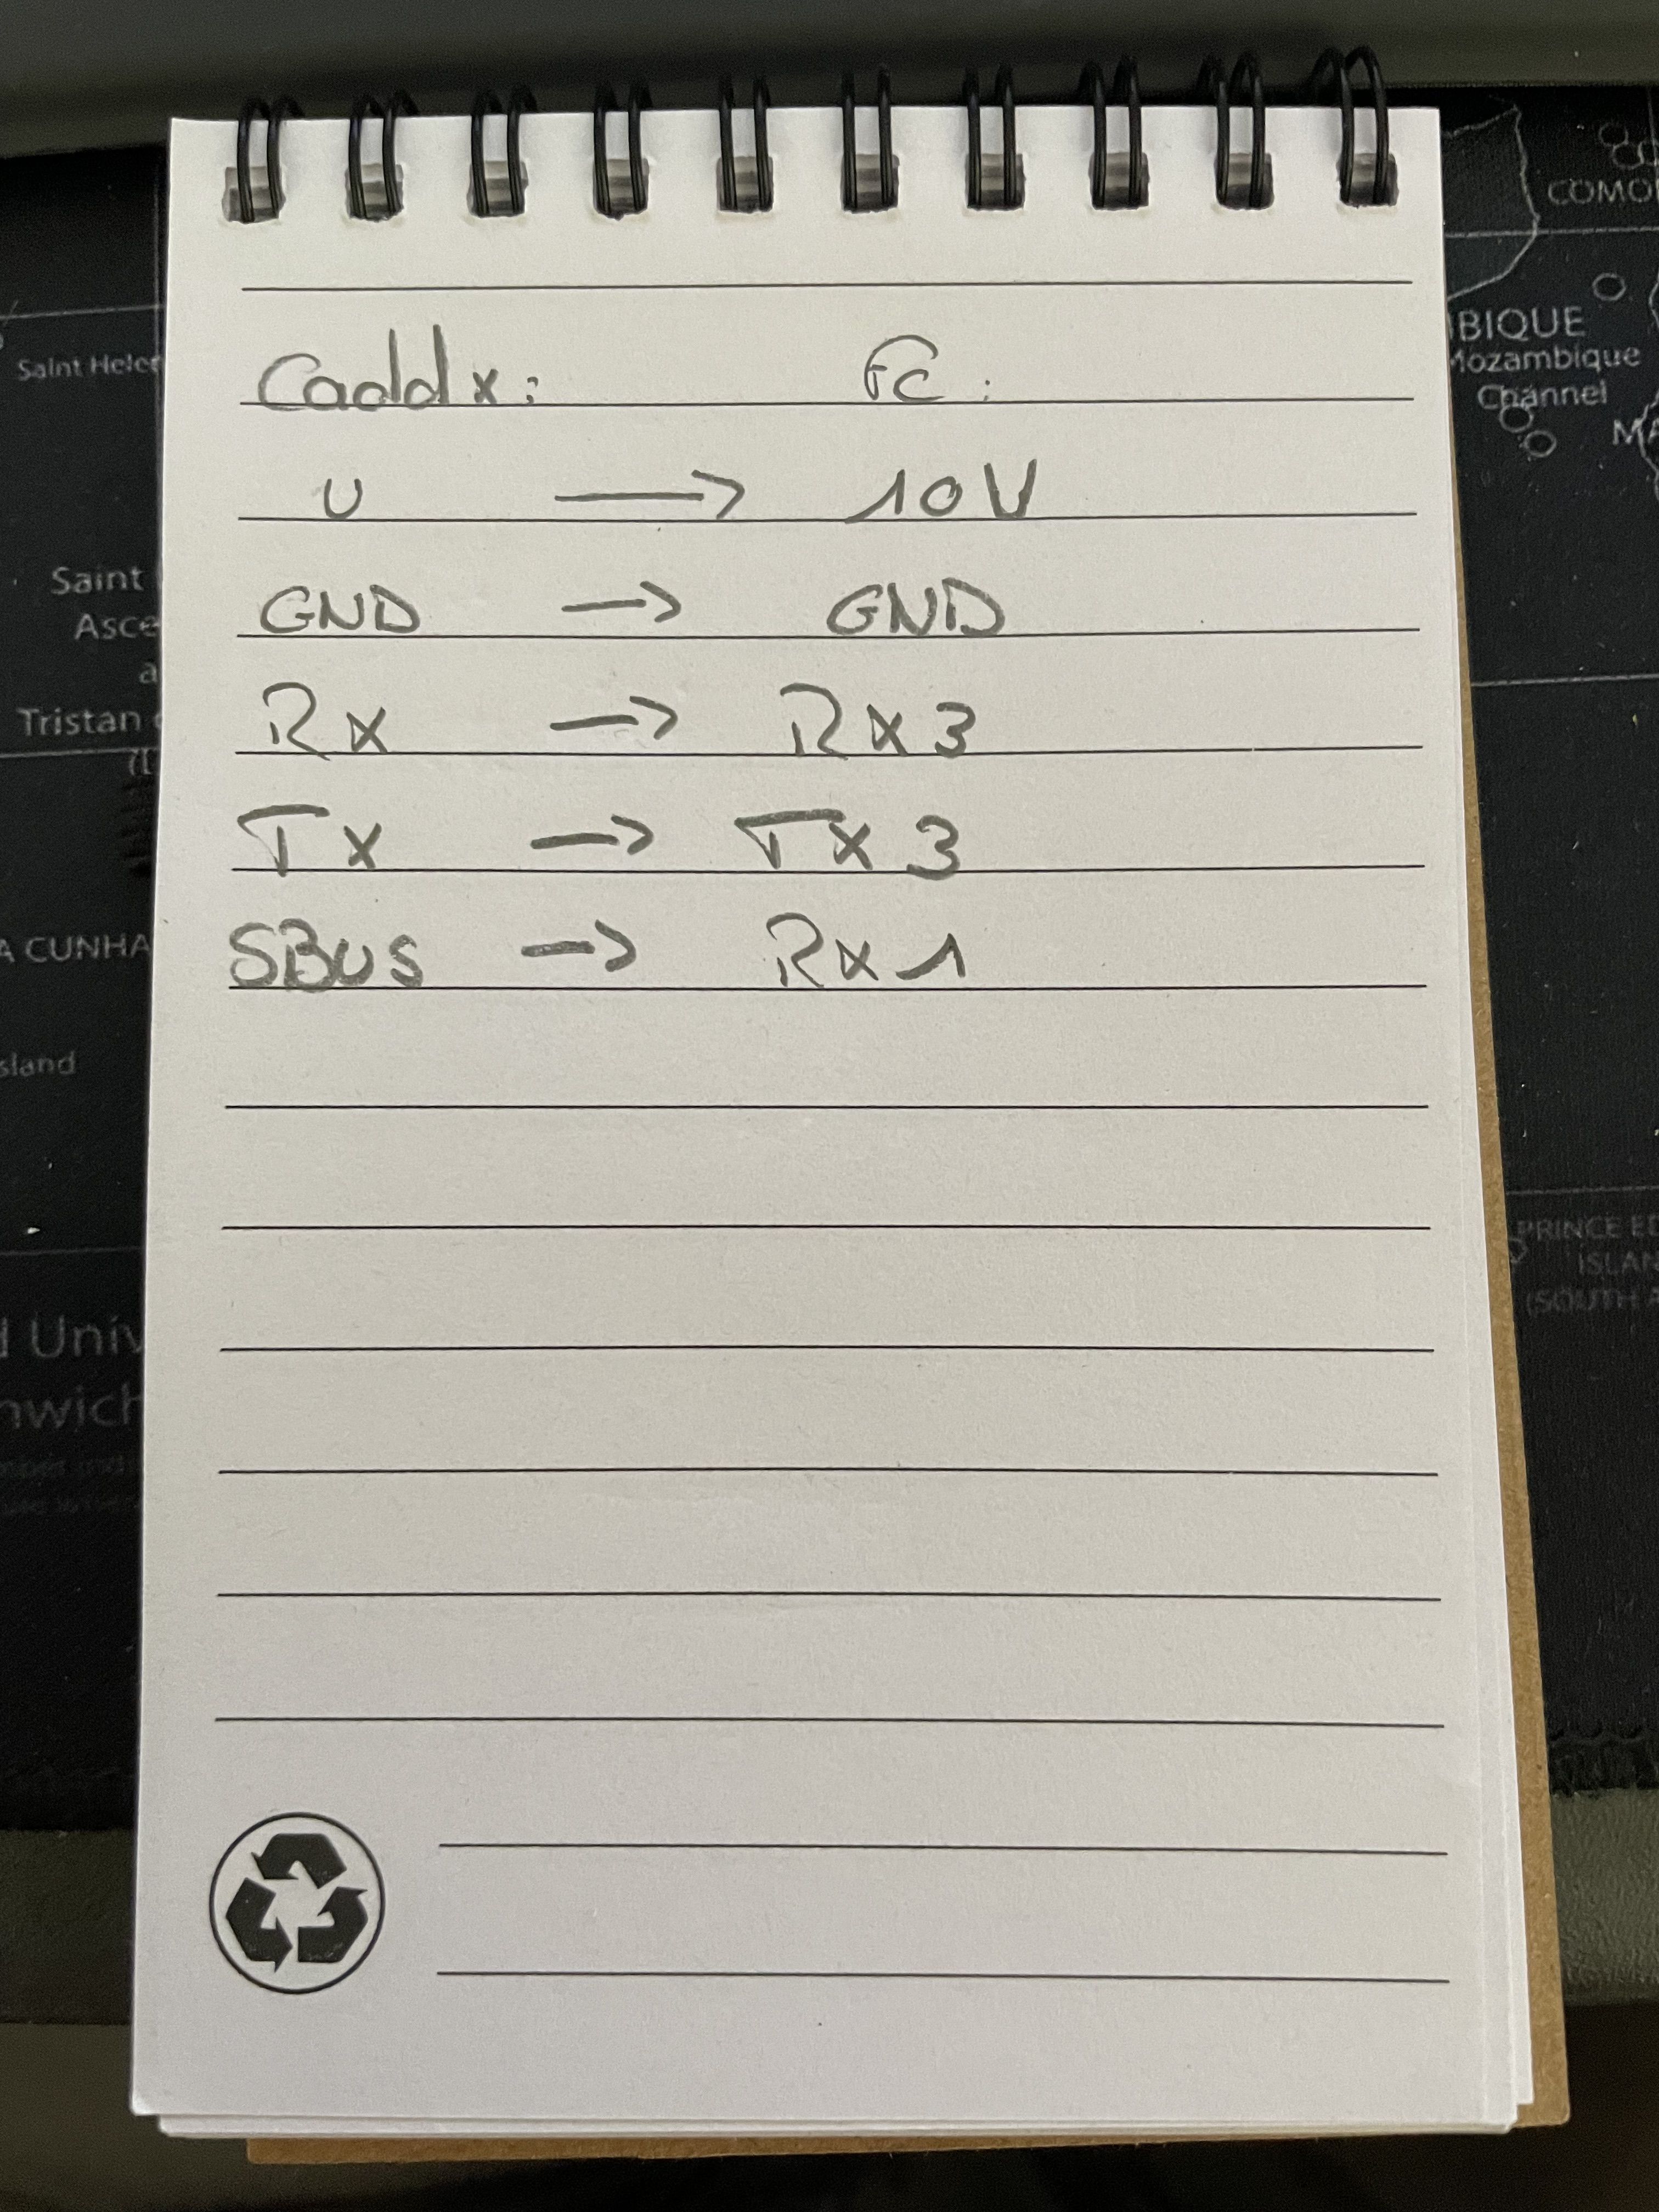 Caddx: FC:
U → 10V
GND → GND
Rx → Rx3
Tx → Tx3
SBUS → Rx1
Saint
Asce
a
Tristan
A CUNHA
sland
d Univ
nwich
COMO
BIQUE
Mozambique
Channel
MA
PRINCE ED
ISLAN
(SOUTH A